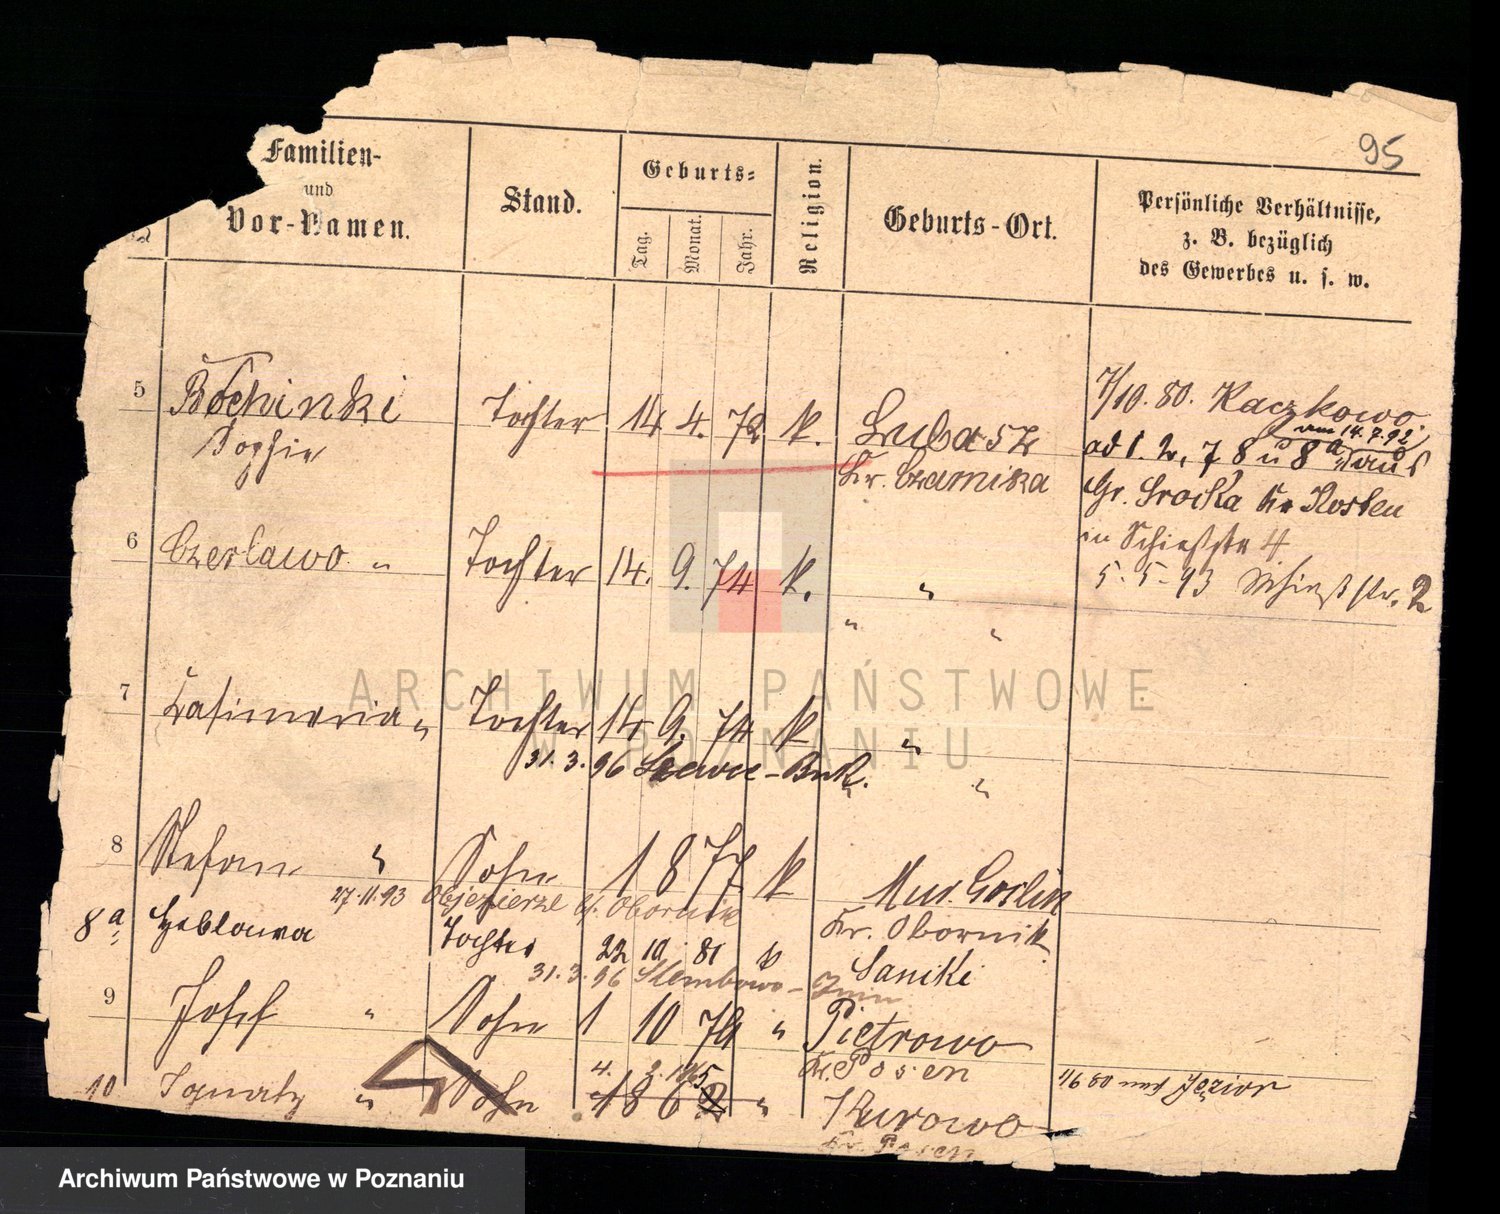 95
Familien-
und
Vor-Namen.
Stand.
Geburts-
Tag.
Monat.
Jahr.
Religion.
Geburts-Ort.
Persönliche Verhältnisse,
z. B. bezüglich
des Gewerbes u. s. w.
5 Bochinski Tochter 14 4. 72 k. Lubasz
Sophie Kr. Czarnika
7/10. 80. Kaczkowo.
am 14.7.92
ad 1. 2, 7 8 u 8a aus
Gr. Srocka Kr Kosten
in Schießstr 4
5. 5. 93 Schießstr. 2
6 Czeslawo " Tochter 14. 9. 74 k. "
" "
7 Casimeria " Tochter 14 9. 74 k "
31. 3. 96 - Buk. "
8 Stefan " Sohn 1877 k Mur. Goslin
27.11.93 Objezierze Kr. Obornik Kr. Obornik
8a Tochter 22 10 81 k Sanike
31. 3. 96 Slembowo -
9 Josef " Sohn 1 10 79 " Pietrowo
Kr. Posen
4. 2. 5
10 Ignatz " Sohn 186 " Kurowo
Kr. Posen
1/6 80 nach Jezior
ARCHIWUM PAŃSTWOWE
W POZNANIU
Archiwum Państwowe w Poznaniu